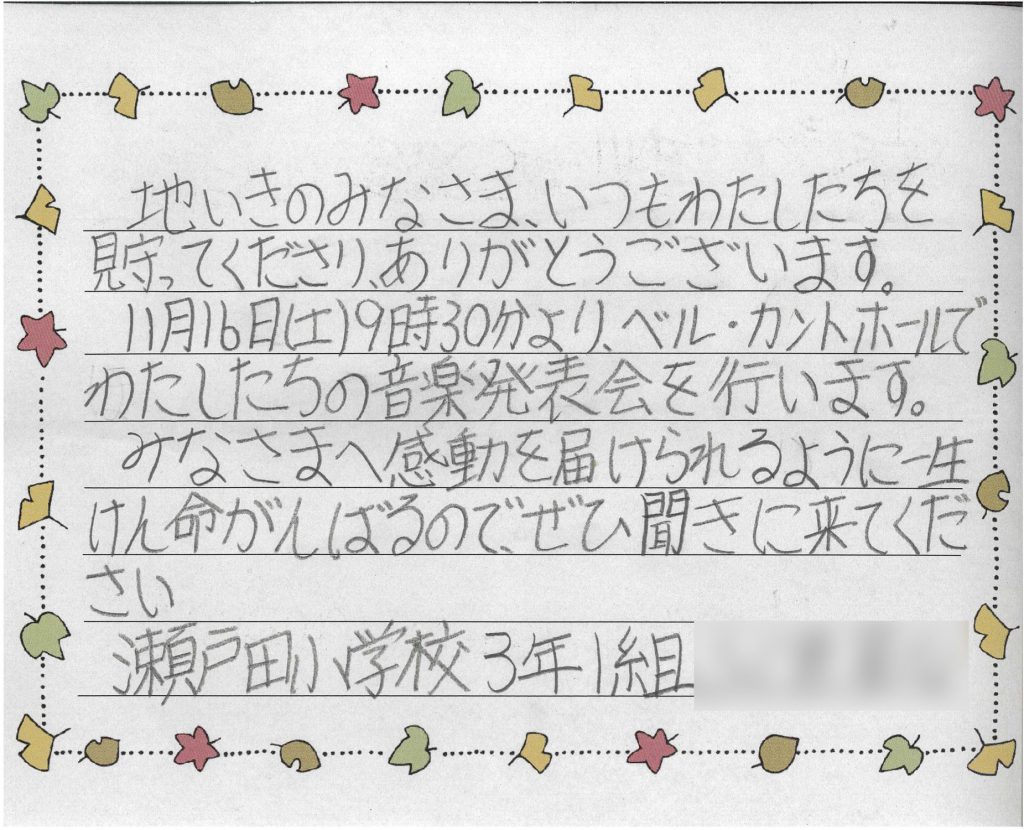 地いきのみなさま、いつもわたしたちを
見守ってくださり、ありがとうございます。
11月16日(土)9時30分より、ベル・カントホールで
わたしたちの音楽発表会を行います。
みなさまへ感動を届けられるように一生
けん命がんばるので、ぜひ聞きに来てくだ
さい
瀬戸田小学校3年1組